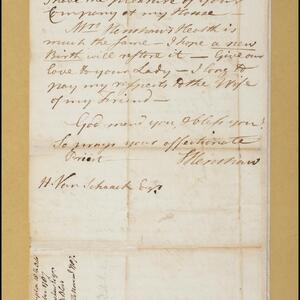 have the pleasure of your
Company at my House —
Mrs. Henshaw's Health is
much the same — I hope a new
Birth will restore it — Give our
love to your Lady — I long to
pay my respects to the Wife
of my Friend —
God mend you & bless you!
So prays your affectionate
Friend
J Henshaw
H. Van Schaack Esqr.